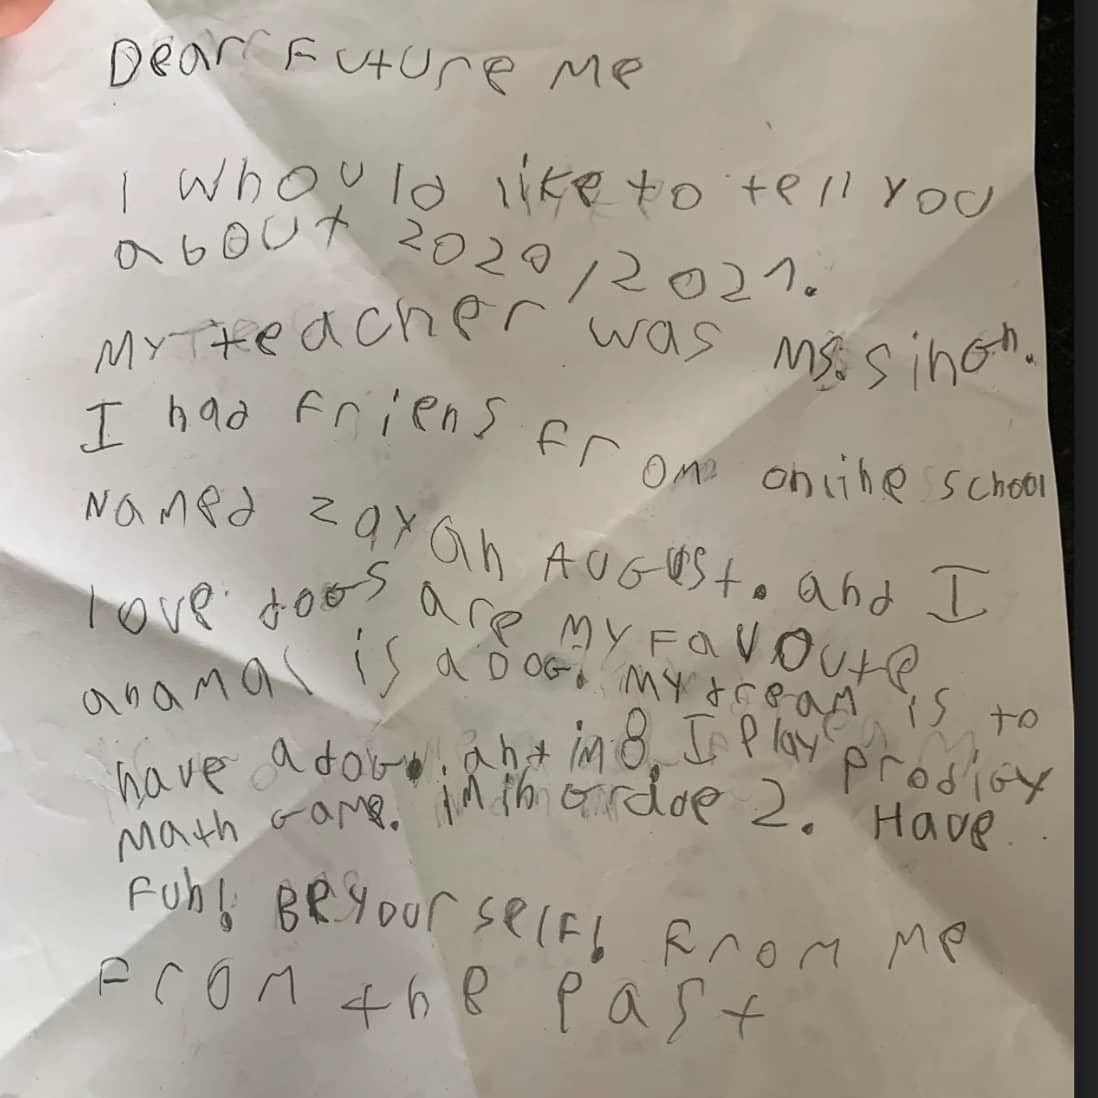 Dear Future Me
I whould like to tell you
about 2020/2021.
My teacher was Ms. Singh.
I had friens from online school
Named zayan August. and I
love dogs are my favoute
anamal is a Dog. My dream is to
have a dog. ant im 8. I Play prodigy
Math Game. im in Grdae 2. Have
Fun! Be your self! From me
From the Past